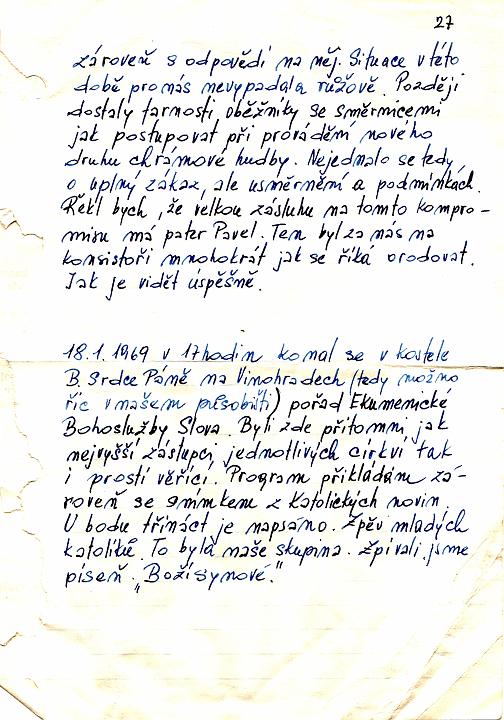 27
zároveň s odpovědí na něj. Situace v této
době pro nás nevypadala růžově. Později
dostaly farnosti oběžníky se směrnicemi
jak postupovat při provádění nového
druhu chrámové hudby. Nejednalo se tedy
o úplný zákaz, ale usměrnění a podmínkách.
Řekl bych, že velkou zásluhu na tomto kompro-
misu má páter Pavel. Ten byl za nás na
konsistoři mnohokrát jak se říká orodovat.
Jak je vidět úspěšně.
18.1.1969 v 17 hodin konal se v kostele
B. Srdce Páně na Vinohradech (tedy možno
říc v našem působišti) pořad Ekumenické
Bohoslužby Slova. Byli zde přítomni jak
nejvyšší zástupci jednotlivých církví tak
i prostí věřící. Program přikládám zá-
roveň se snímkem z Katolických novin
V bodu třináct je napsáno. Zpěv mladých
katolíků. To byla naše skupina. Zpívali jsme
píseň „Boží synové."